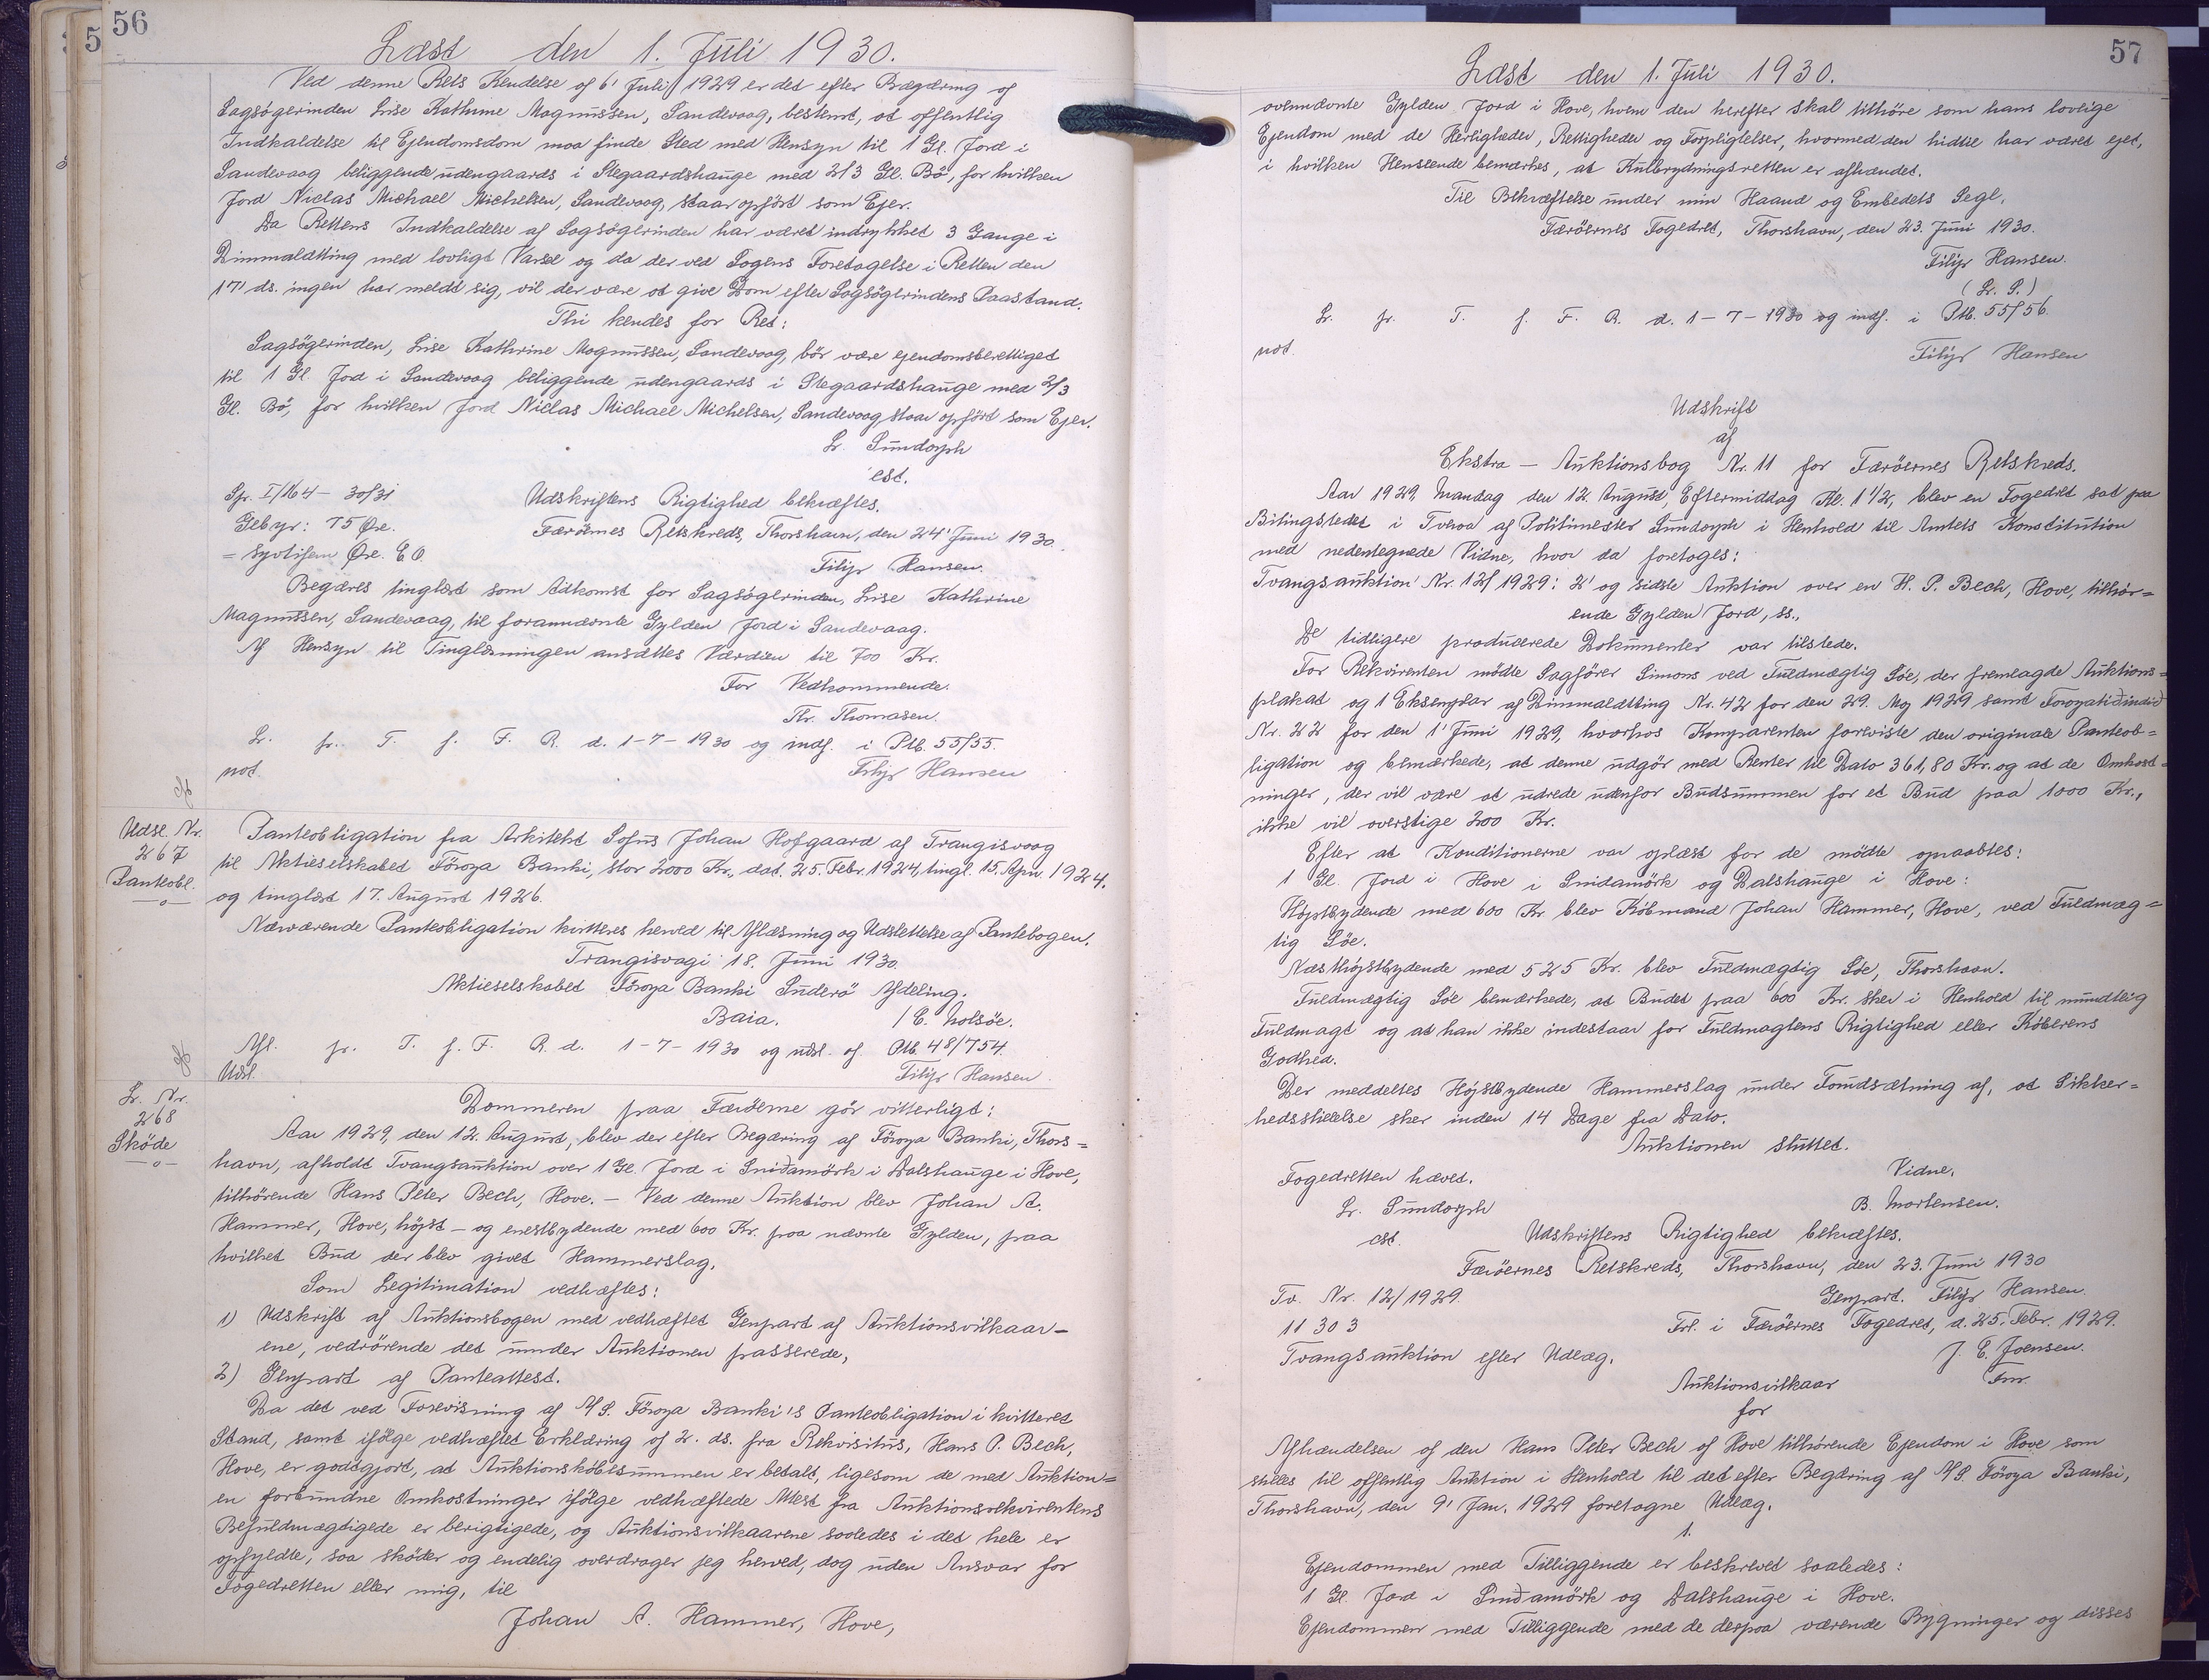 56
Læst den 1. Juli 1930.
Ved denne Rets Kendelse af 6' Juli 1929 er det efter Begæring af
Sagsøgerinden Lise Kathrine Magnussen, Sandevaag, bestemt, at offentlig
Indkaldelse til Ejendomsdom maa finde Sted med Hensyn til 1 Gl. Jord i
Sandevaag beliggende udengaards i Stegaardshauge med 2/3 Gl. Bö, for hvilken
Jord Niclas Michael Michelsen, Sandevaag, staar opført som Ejer.
Da Rettens Indkaldelse af Sagsøgerinden har været indrykket 3 Gange i
Dimmalætting med lovligt Varsel og da der ved Sagens Foretagelse i Retten den
17' ds. ingen har meldt sig, vil der være at give Dom efter Sagsøgerindens Paastand.
Thi kendes for Ret:
Sagsøgerinden, Lise Kathrine Magnussen, Sandevaag, bör være ejendomsberettiget
til 1 Gl. Jord i Sandevaag beliggende udengaards i Stegaardshauge med 2/3
Gl. Bö, for hvilken Jord Niclas Michael Michelsen, Sandevaag, staar opført som Ejer.
Sr. Sundorph
cst.
Spr. I/164 - 30/31
Udskriftens Rigtighed bekræftes.
Gebyr: 75 Øre.
Færöernes Retskreds, Thorshavn, den 24' Juni 1930.
= Syvtifem Øre. E.O.
Filip Hansen.
Begæres tinglæst som Adkomst for Sagsøgerinden, Lise Kathrine
Magnussen, Sandevaag, til forannævnte Gylden Jord i Sandevaag.
Af Hensyn til Tinglæsningen ansættes Værdien til 700 Kr.
For Vedkommende.
Thr. Thomasen.
Lr. fr. T. f. F. R. d. 1-7-1930 og indf. i Ptb. 55/55.
not.
Filip Hansen
Udsl. Nr.
267
Panteobl.
—o—
Panteobligation fra Arkitekt Sofus Johan Hofgaard af Trangisvaag
til Aktieselskabet Föroya Banki, stor 2000 Kr., dat. 25. Febr. 1924, tingl. 15. Apr. 1924.
og tinglæst 17. August 1926.
Nærværende Panteobligation kvitteres herved til Aflæsning og Udslettelse af Pantebogen.
Trangisvagi 18. Juni 1930.
Aktieselskabet Föroya Banki Suderö Afdeling.
Baia. / E. Nolsöe.
Afl. fr. T. f. F. R. d. 1-7-1930 og udsl. af Ptb. 48/754.
Udsl.
Filip Hansen.
Lr. Nr.
268
Sköde
—o—
Dommeren paa Færöerne gör vitterligt:
Aar 1929, den 12. August, blev der efter Begæring af Föroya Banki, Thors=
havn, afholdt Tvangsauktion over 1 Gl. Jord i Sniðamörk i Dalshauge i Hove,
tilhørende Hans Peter Bech, Hove. — Ved denne Auktion blev Johan A.
Hammer, Hove, højst- og enestbydende med 600 Kr. paa nævnte Gylden, paa
hvilket Bud der blev givet Hammerslag.
Som Legitimation vedhæftes:
1) Udskrift af Auktionsbogen med vedhæftet Genpart af Auktionsvilkaar-
ene, vedrörende det under Auktionen passerede,
2) Genpart af Panteattest.
Da det ved Forevisning af A/S. Föroya Banki's Panteobligation i kvitteret
Stand, samt ifølge vedhæftet Erklæring af 2. ds. fra Rekvisitus, Hans P. Bech,
Hove, er godtgjort, at Auktionskøbesummen er betalt, ligesom de med Auktion=
en forbundne Omkostninger ifølge vedhæftede Attest fra Auktionsrekvirentens
Befuldmægtigede er berigtigede, og Auktionsvilkaarene saaledes i det hele er
opfyldte, saa sköder og endelig overdrager jeg herved, dog uden Ansvar for
Fogedretten eller mig, til
Johan A. Hammer, Hove,
57
Læst den 1. Juli 1930.
ovennævnte Gylden Jord i Hove, hvem den herefter skal tilhöre som hans lovlige
Ejendom med de Herligheder, Rettigheder og Forpligtelser, hvormed den hidtil har været ejet,
i hvilken Henseende bemærkes, at Kulbrydningsretten er afhændet.
Til Bekræftelse under min Haand og Embedets Segl.
Færöernes Fogedret, Thorshavn, den 23. Juni 1930.
Filip Hansen.
(L. S.)
Lr. fr. T. f. F. R. d. 1-7-1930 og indf. i Ptb. 55/56.
not.
Filip Hansen
Udskrift
af
Ekstra - Auktionsbog Nr. 11 for Færöernes Retskreds.
Aar 1929, Mandag den 12. August, Eftermiddag Kl. 1 1/2, blev en Fogedret sat paa
Bilingstedet i Tveraa af Politimester Sundorph i Henhold til Amtets Konstitution
med nedentegnede Vidne, hvor da foretoges:
Tvangsauktion Nr. 12/1929: 2' og sidste Auktion over en H. P. Bech, Hove, tilhör=
ende Gylden Jord, ss.,
De tidligere producerede Dokumenter var tilstede.
For Rekvirenten mödte Sagfører Simons ved Fuldmægtig Söe, der fremlagde Auktions=
plakat og 1 Eksemplar af Dimmalætting Nr. 42 for den 29. Maj 1929 samt Foroyatiðindi
Nr. 22 for den 1' Juni 1929, hvorhos Komparenten foreviste den originale Panteob=
ligation og bemærkede, at denne udgör med Renter til Dato 361,80 Kr. og at de Omkost=
ninger, der vil være at udrede udenfor Budsummen for et Bud paa 1000 Kr.,
ikke vil overstige 200 Kr.
Efter at Konditionerne var oplæst for de mödte opraabtes:
1 Gl. Jord i Hove i Snidamörk og Dalshauge i Hove:
Højstbydende med 600 Kr blev Købmand Johan Hammer, Hove, ved Fuldmæg=
tig Söe.
Næsthøjstbydende med 525 Kr. blev Fuldmægtig Söe, Thorshavn.
Fuldmægtig Söe bemærkede, at Budet paa 600 Kr. sker i Henhold til mundtlig
Fuldmagt og at han ikke indestaar for Fuldmagtens Rigtighed eller Köberens
Godhed.
Der meddeltes Højstbydende Hammerslag under Forudsætning af, at Sikker=
hedsstillelse sker inden 14 Dage fra Dato.
Auktionen sluttet.
Fogedretten hævet.
Vidne.
Sr. Sundorph
B. Mortensen.
cst.
Udskriftens Rigtighed bekræftes.
Færöernes Retskreds, Thorshavn, den 23. Juni 1930
Tv. Nr. 12/1929.
Genpart. Filip Hansen.
11 30 3
Frl. i Færöernes Fogedret, d. 25. Febr. 1929.
Tvangsauktion efter Udlæg.
J. E. Joensen.
Auktionsvilkaar
Fm.
for
Afhændelsen af den Hans Peter Bech af Hove tilhørende Ejendom i Hove som
stilles til offentlig Auktion i Henhold til det efter Begæring af A/S. Föroya Banki,
Thorshavn, den 9' Jan. 1929 foretagne Udlæg.
1.
Ejendommen med Tilliggende er beskrevet saaledes:
1 Gl. Jord i Sniðamörk og Dalshauge i Hove.
Ejendommen med Tilliggende med de derpaa værende Bygninger og disses